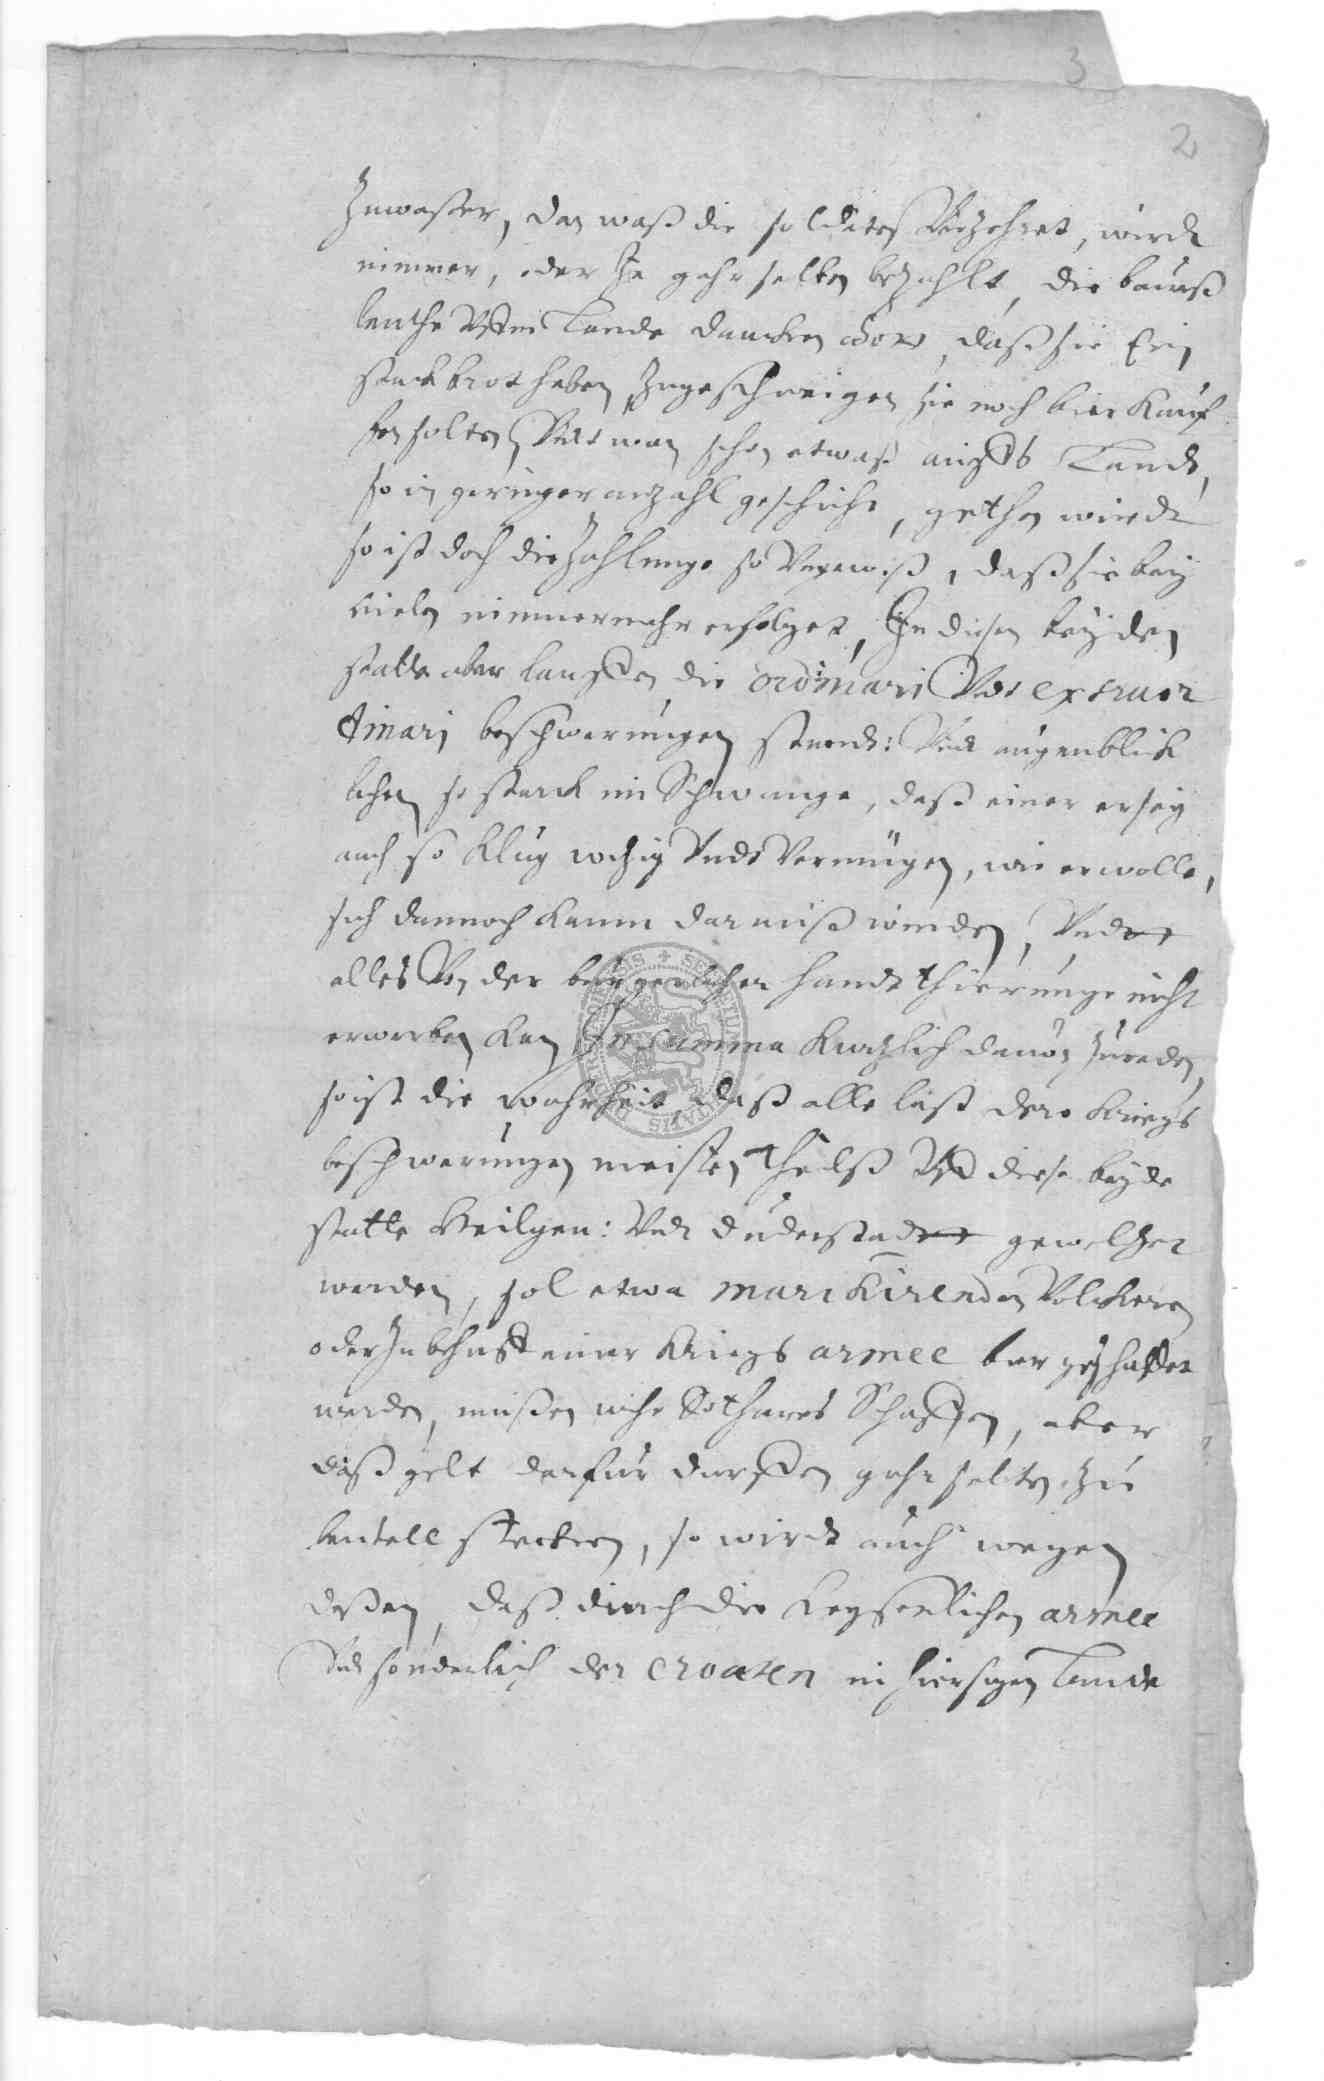 3
2
Zuwasser, dan waß die soldates Verzehret, wirdt
nimmer, oder Je gahr selten bezahlt, die baurß
leuthe Vffm Lande dancken Gott, daß sie Ein
stuck brot haben, Zugeschweigen sie noch bier Kauf
fen solten, Undt wan schon etwaß aufß Landt,
so in geringer anzahl geschicht, gethan wirdt
so ist doch die Zahlunge so Ungewiß, daß sie bey
vielen nimmermehr erfolget, In diesen beyden
statte aber lauffen die ordinari Vndt extraor
dinarj beschwerungen stund: Vndt augenblick
lichen so starck im Schwange, daß einer er sey
auch so klug witzig Vndt Vermügen, wie er wolle,
sich dannoch kaum darauß winden, Vndt
alles Von der burgerlichen handtthierunge nicht
erwerben kan, In summa kurtzlich dauon zureden,
so ist die wahrheit, daß alle last dero kriegs
beschwerungen meisten theilß Vff diese beyde
statte Heilgen: Vndt Duderstadt geweltzet
werden, sol etwa marckirenden Volckeren
oder Zu behuff einer kriegs armee bier geschaffet
werden, mußen wihr Sothanes Schaffen, aber
daß gelt darfur durffen gahr selten Zu
beutell stecken, so wirdt auch wegen
deßen, daß durch die keyserlichen armee
Vndt sonderlich der Croaten in hiersigen Lande
SECRETUM